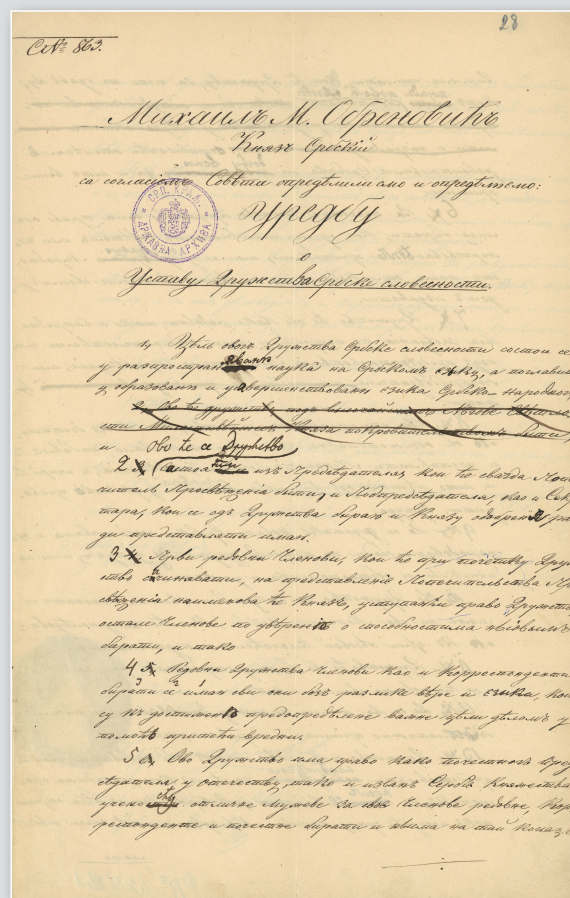 28
C№ 863.
Михаилъ М. Обреновићъ
Князъ Србскій
са согласіемъ Совѣта опредѣлили смо и опредѣлюємо:
Уредбу
о
Уставу Дружства Србске словесности.
СРП. КРАЉ. ДРЖАВНА АРХИВА
1, Цѣль овогъ Дружства Србске словесности состои се
у распростран наука на Србскомъ єзику, а поглавито
у образованю и усавершенствованю єзика Србско-народног
2. Ово ће дружство подъ
Князя покровительствомъ быти,
и Ово ће се Дружство
2 состояти изъ Предсѣдателя, кои ће свагда Попе
читель Просвѣщенія быти, и Подпредсѣдателя, као и Секре
тара, кои се одъ Дружства бираю и Князу одобреня ра
ди представляти имаю.
3 Први редовни Членови, кои ће при почетку Друж
ство зачинявати, на представленіе Попечительства Про
свѣщенія наименова ће Князъ, уступаюћи право Дружст
остале Членове по увѣреню о способностима ньіовымъ
бирати, и тако
4 Редовни Дружства Членови као и Корреспонденти
бирати се имаю сви они безъ разлике вѣре и єзика, кои
су къ достиженю предопредѣлене важне цѣли дѣломъ у
помоћь притећи вредни.
5 Ово Дружство има право како почестногъ пред
сѣдателя у отечеству, тако и изванъ Сербіє Княжества
учене отличне Мужеве за Членове редовне, Кор
респонденте и почетне бирати и ньима на тай конац